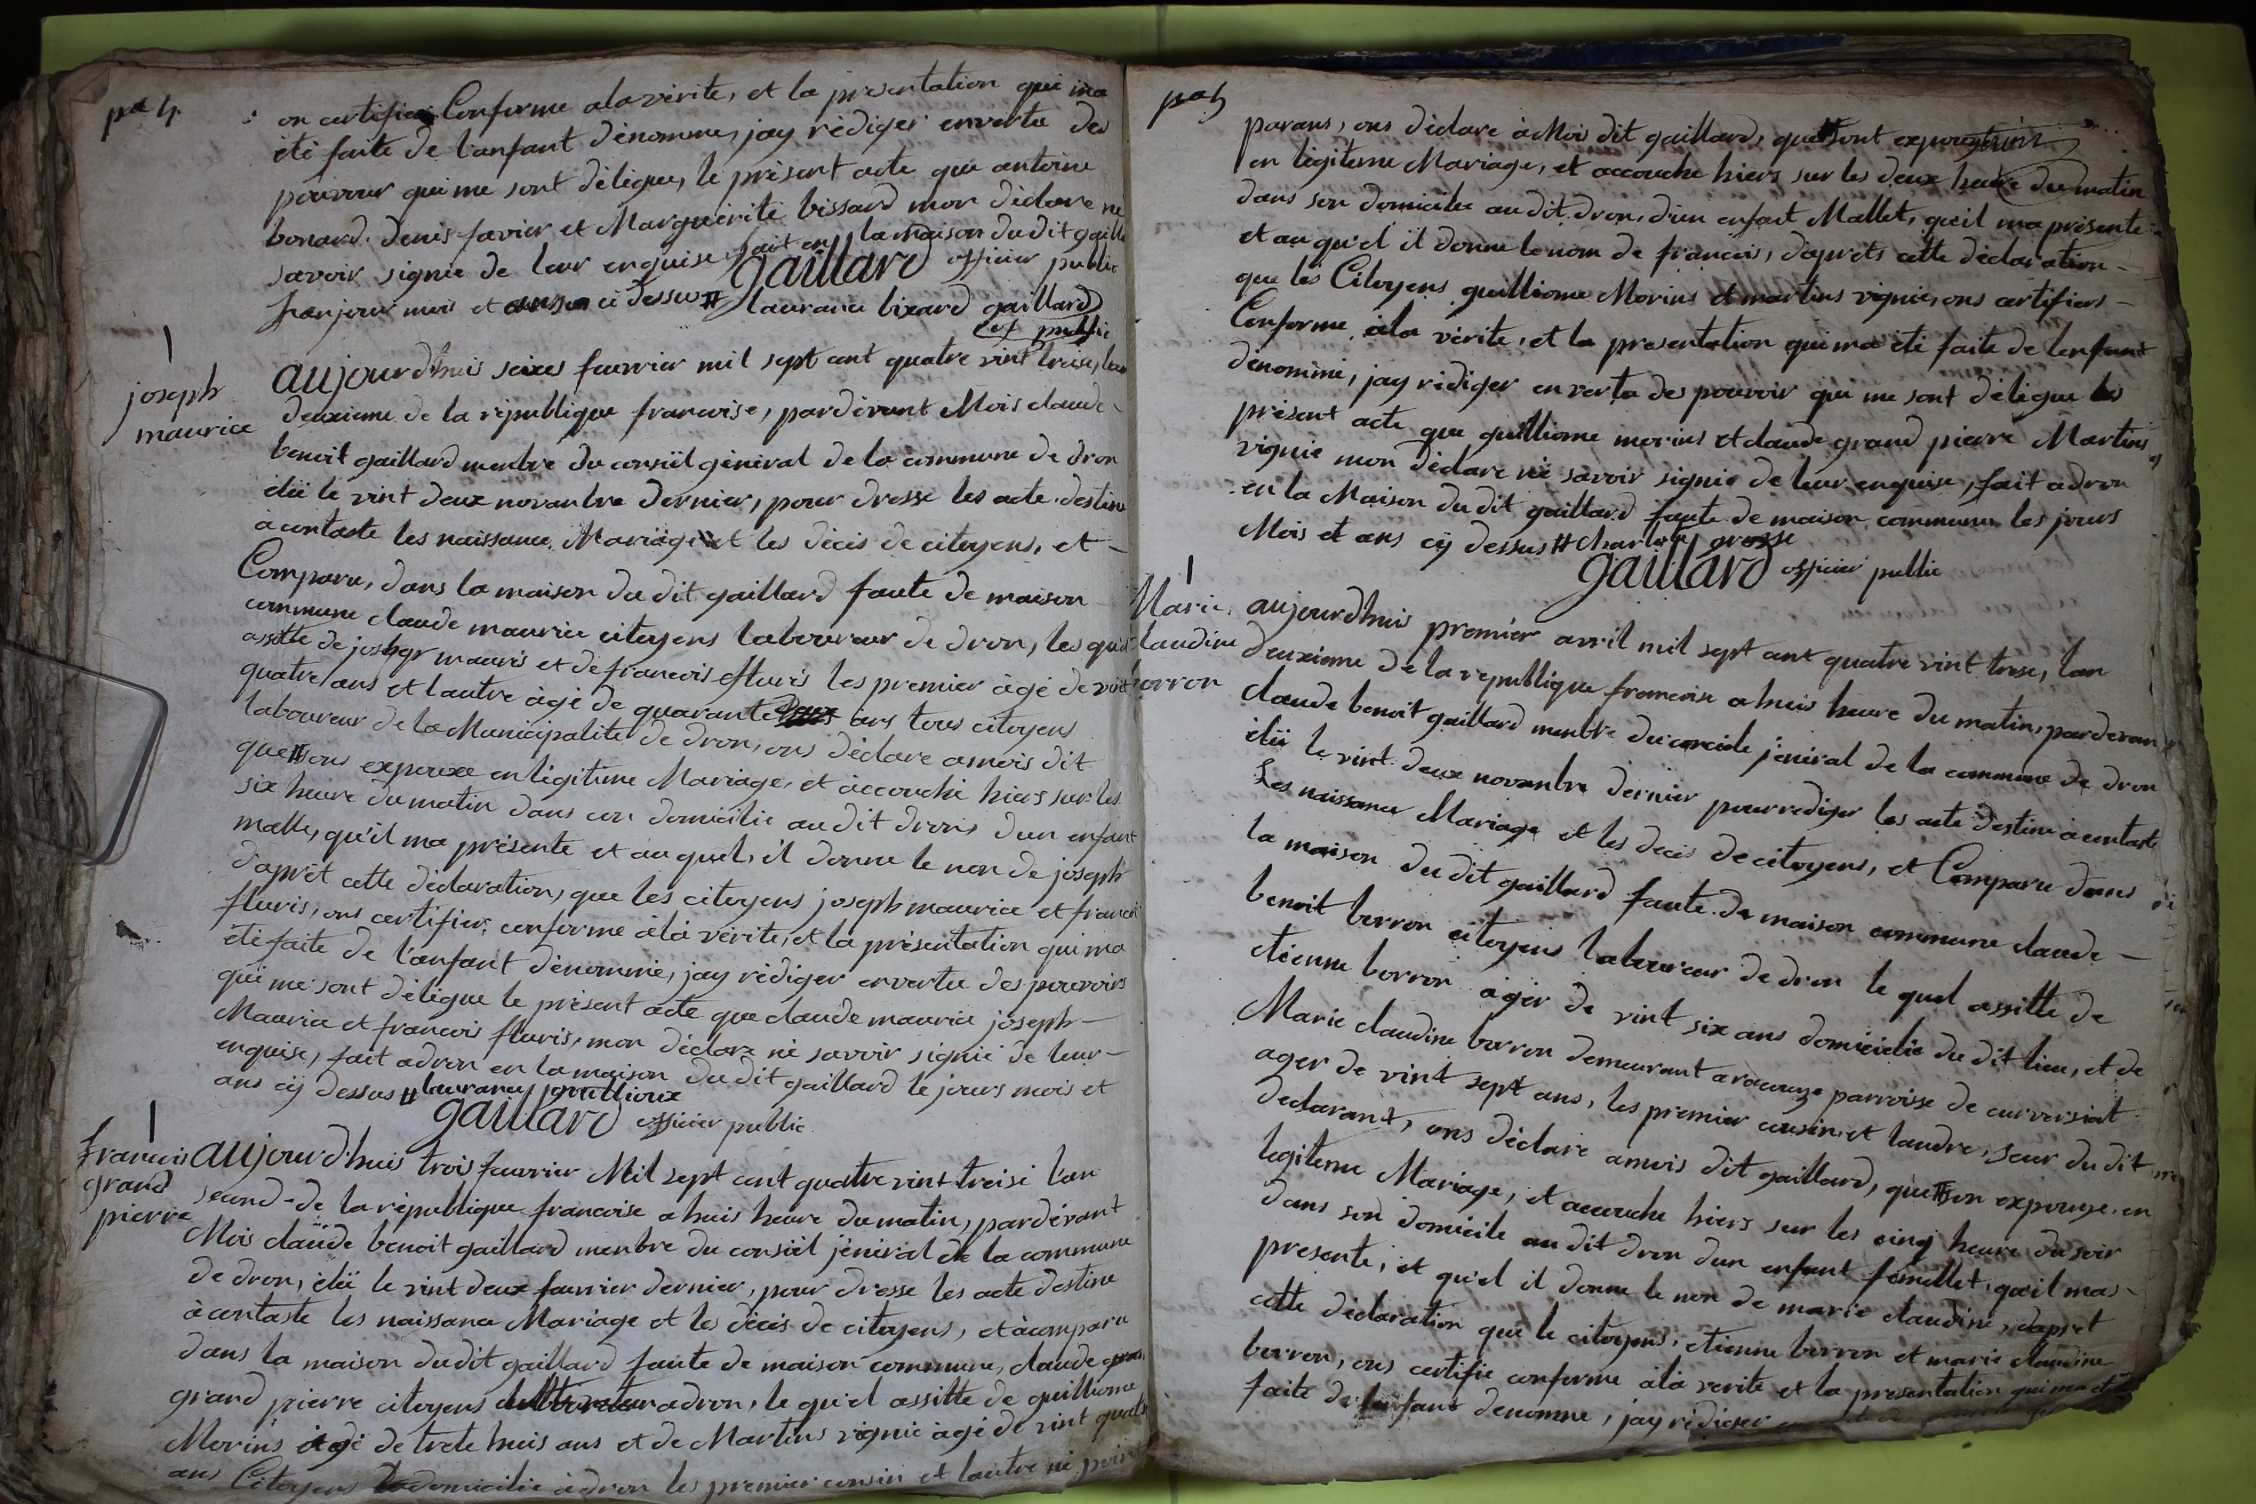 pa 4
on certifier Conforme ala vérite, et la présentation qui ma
été faite de l'anfant dénomme, jay rédiger envertu des
pouvoir qui me sont délégue, le présent acte que antoine
bonard. denis favier et Marguérite bissard mon déclare ne
savoir signie de leur enquise fait en la maison du dit gaill
gaillard officier public
jour mois et ans ci dessus # laurance bizard gaillard
of public
joseph
maurice
aujourdhuis seizes fauvrier mil sept cent quatre vint treise, lan
deuxieme de la république francoise, pardevant Mois claude
benoit gaillard menbre du consiel général de la commune de dron
élü le vint deux novanbre dernier, pour dresse les acte destine
à contaste les naissance, Mariage et les décès de citoyens, et
Comparu, dans la maison du dit gaillard faute de maison
commune claude maurice citoyens laboureur de dron, les quel
assitte de joseph mauris et de francois fluris les premier àgé de vint
quatre ans et lautre àgé de quarante ans tous citoyens
laboureur de la Municipalite de dron, ons déclare amois dit
que # sons expouze en légitime Mariage, et àccouché hiers sur les
six heure du matin dans son domicilie au dit drons dun enfant
malle, qu'il ma présente et au quel, il donne le non de joseph
d'aprèt cette déclaration, que les citoyens joseph maurice et francoi
fluris, ons certifier, conforme àlà vérite, et la présentation qui ma
été faite de l'anfant dénommé, jay rédiger envertu des pouvoirs
qui me sont délégue le présent acte que claude maurice joseph
Maurice et francois fluris, mon déclare né savoir signié de leur
enquise, fait adron en la maison du dit gaillard le jours mois et
ans cÿ dessus # laurance
gaillard officier public
francois
grand
pierre
aujourd'huis trois fauvrier Mil sept cent quatre vint treisi l'an
second de la république francoise a huis heure du matin, pardévant
Mois claüde benoit gaillard menbre du consiel jénéral de la commune
de dron, élü le vint deux fauvrier dernier, pour dresse les acte destine
à contaste les naissance Mariage et les décès de citoyens, et àcomparu
dans la maison dudit gaillard faute de maison commune, claude
grand pierre citoyens adron, le qu'el assitte de guilliome
Morins àgé de trete huis ans et de Martins vignié àgé de vint quatr
ans Citoyens domicilié àdron les premier cousin et lautre ni
pa 5
parans, ons déclare à Mois dit gaillard, que # sont
en légiteme Mariage, et accouche hiers sur les deux heure du matin
dans son domicilie au dit dron, d'un enfant Mallet, qu'il ma présente
et au qu'el il donne le nom de francois, d'aprèts cette déclaration
que les Citoyens guilliome Morins et martins vignié, ons certifiers
Conforme àla vérite, et la présentation qui ma été faite de lenfant
dénommé, jay rédiger en vertu des pouvoir qui me sont délégue les
présent acte que guilliome morins et claude grand pierre Martins
vignié mon déclare né savoir signié de leur enquise, fait adron
en la Maison du dit gaillard faute de maison commune les jours
Mois et ans cÿ dessus # grosse
gaillard officier public
Marie
laudine
borron
aujourdhuis premier avril mil sept ant quatre vint trese, lan
deuxieme de la republique francoise a huis heure du matin, pardevan
claude benoit gaillard menbre du jénéral de la commune de dron
élü le vint deux novanbre dernier pour rediger les acte destine à contaste
Les naissance Mariage et les décès de citoyens, et Comparu dans
la maison du dit gaillard faute de maison commune claude
benoit borron citoyens laboureur de dron le quel assitte de
etienne borron àgér de vint six ans domicielié du dit lieu, et de
Marie claudine borron demeurant parroise de
ager de vint sept ans, les premier cousin, et laudre, seur du dit
declarant, ons déclare amois dit gaillard, que # son expouze en
légiteme Mariage, et accouche hiers sur les cinq heure du soir
dans son domicile au dit dron dun enfant femellet, qu'il mas
presente, et qu'el il donne le non de marie claudine, d'aprèt
cette déclaration que le citoyens, etienne borron et marie claudine
borron, ons certifié conforme àlà verite et la présentation qui ma été
faite de lanfant denomme, jay rédiger